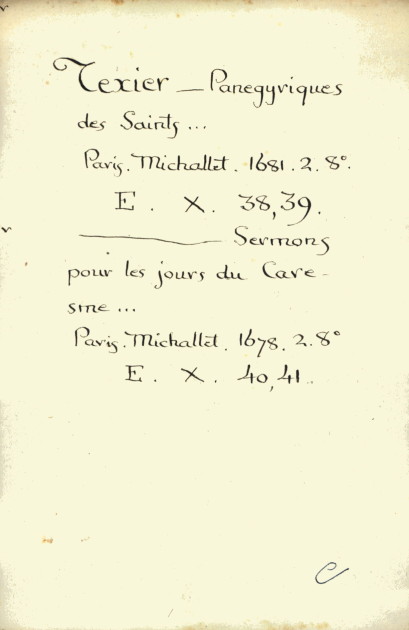 Texier — Panegyriques
des Saints ...
Paris. Michallet. 1681. 2. 8°.
E. X. 38,39.
——— Sermons
pour les jours du Care-
sme ...
Paris. Michallet. 1678. 2. 8°
E. X. 40,41.
C